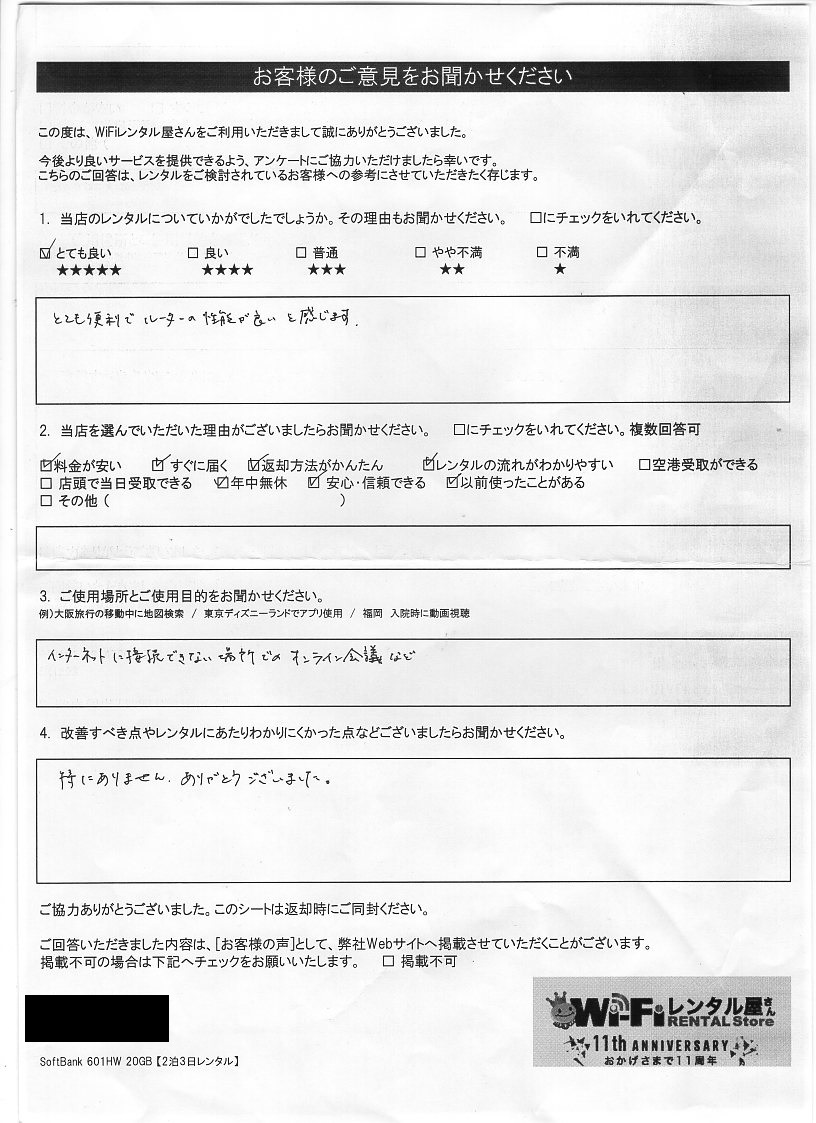 お客様のご意見をお聞かせください
この度は、WiFiレンタル屋さんをご利用いただきまして誠にありがとうございました。
今後より良いサービスを提供できるよう、アンケートにご協力いただけましたら幸いです。
こちらのご回答は、レンタルをご検討されているお客様への参考にさせていただきたく存じます。
1. 当店のレンタルについていかがでしたでしょうか。その理由もお聞かせください。 □にチェックをいれてください。
☑とても良い □ 良い □ 普通 □ やや不満 □ 不満
★★★★★ ★★★★ ★★★ ★★ ★
とても便利で ルーターの性能が良いと感じます.
2. 当店を選んでいただいた理由がございましたらお聞かせください。 □にチェックをいれてください。複数回答可
☑料金が安い ☑すぐに届く ☑返却方法がかんたん ☑レンタルの流れがわかりやすい □空港受取ができる
□ 店頭で当日受取できる ☑年中無休 ☑ 安心・信頼できる ☑以前使ったことがある
□ その他 ( )
3. ご使用場所とご使用目的をお聞かせください。
例）大阪旅行の移動中に地図検索 / 東京ディズニーランドでアプリ使用 / 福岡 入院時に動画視聴
インターネットに接続できない場所でのオンライン会議など
4. 改善すべき点やレンタルにあたりわかりにくかった点などございましたらお聞かせください。
特にありません. ありがとうございました。
ご協力ありがとうございました。このシートは返却時にご同封ください。
ご回答いただきました内容は、[お客様の声]として、弊社Webサイトへ掲載させていただくことがございます。
掲載不可の場合は下記へチェックをお願いいたします。 □ 掲載不可
Wi-Fiレンタル屋さん
RENTAL Store
11th ANNIVERSARY
おかげさまで11周年
SoftBank 601HW 20GB【2泊3日レンタル】